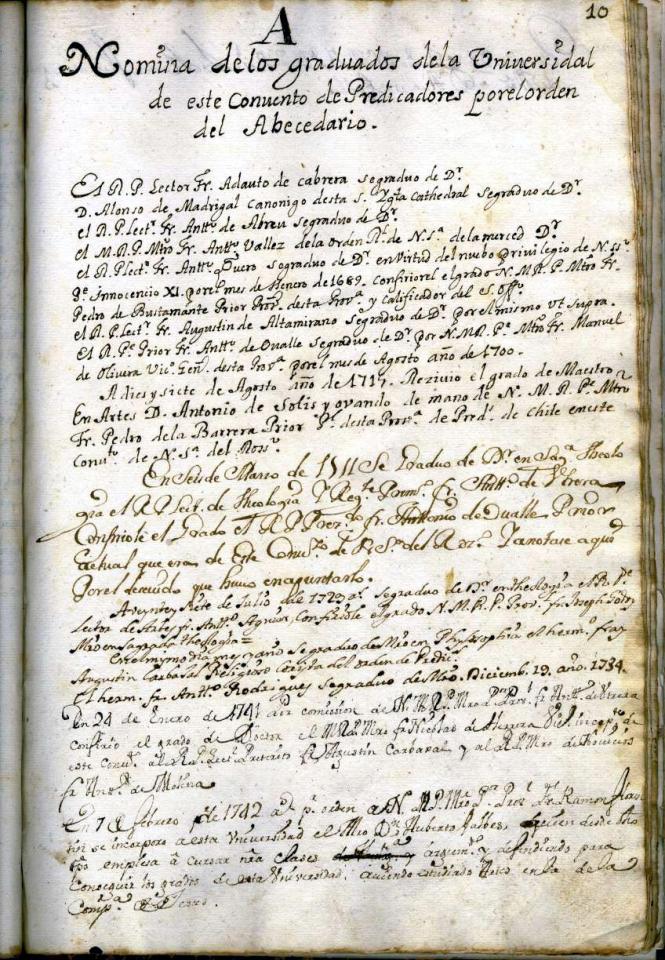 10
A
Nomina de los graduados dela Universidad
de este Convento de Predicadores por el orden
del Abecedario.
El R. P. Lector Fr. Adauto de Cabrera se graduo de Dr.
D. Alonso de Madrigal Canonigo desta S. Yglia Cathedral se graduo de Dr.
el R. P. Lectr. Fr. Antto. de Abreu se graduo de Dr.
el M. R. P. Mtro Fr. Antto. Vallez de la Orden Rl. de N. Sa. dela merced Dr.
el R. P. Lectr. Fr. Antto. Quero se graduo de Dr. en virtud del nuebo Privilegio de N. SSo.
Pe. Innocencio XI. por el mes de Henero de 1689. confiriole el grado N. M. R. P. Mtro Fr.
Pedro de Bustamante Prior Provl. desta Prova. y Calificador del S. Offo.
el R. P. Lectr. Fr. Augustin de Altamirano se graduo de Dr. por el mismo vt supra.
El R. Pe. Prior Fr. Antto. de Ovalle se graduo de Dr. por N. M. R. Pe. Mtro Fr. Manuel
de Olivera Vico. Genl. desta Prova. por el mes de Agosto año de 1700.
A dies y siete de Agosto año de 1717. Rezivio el grado de Maestro
En Artes D. Antonio de Solis y ovando de mano de N. M. R. Pe. Mtro
Fr. Pedro de la Barrera Prior Pl. desta Prova. de Predr. de Chile en este
Convto. de N. Sa. del Rosro.
En Seis de Marzo de 1711 Se Graduo de Dr. en Saga. Theolo
gia el R. P. Lect. de Theologia Y Regte. Fr. Antto. de
Confiriole el Grado el R. P. Fr. Anttonio de Ovalle Prior
actual que era de Este Convto. de N. Sa. del Rozo. Y anotase aqui
Por el descuido que huvo en apuntarlo.
A veynte y siete de Julio del 1729 as. se graduo de Dr. en theologia el R. Pe.
Lector de Artes fr. Antto. Aguiar, Confiriole el grado N. M. R. P. Prov. fr. Joseph
Mro en sagrada theologia =
En el mysmo dia mes y año se graduo de Mro en Philosophia el hermo. fray
Augustin Carbajal Religioso Corista del orden de Predic.
El herm. fr. Antto. Rodriguez se graduo de Mro. Diciemb. 19. año. 1734.
En 24 de Enero de 1741 por comision de N. M. R. P. Mro fr. Antto. de
Confirio el grado de Doctor el M. R. P. Mro fr. Nicolas de Herrera
este Convto. al R. P. Lect. fr. Agustin Carbajal y al R. P. Mro de Novicios
fr. Anto. de Molina
En 7 de febrero de 1742 as. pr. orden de N. M. R. P. Mro Dr. Pro. fr. Ramon
se incorporo a esta Universidad el Mro Dn. Huberto Valdes, quien desde
tpo. empiesa a cursar nras clases arguiendo. y defendiendo para
conceguir los grados de esta Universidad. aviendo estudiado en la de la
Compa. de Jesus.